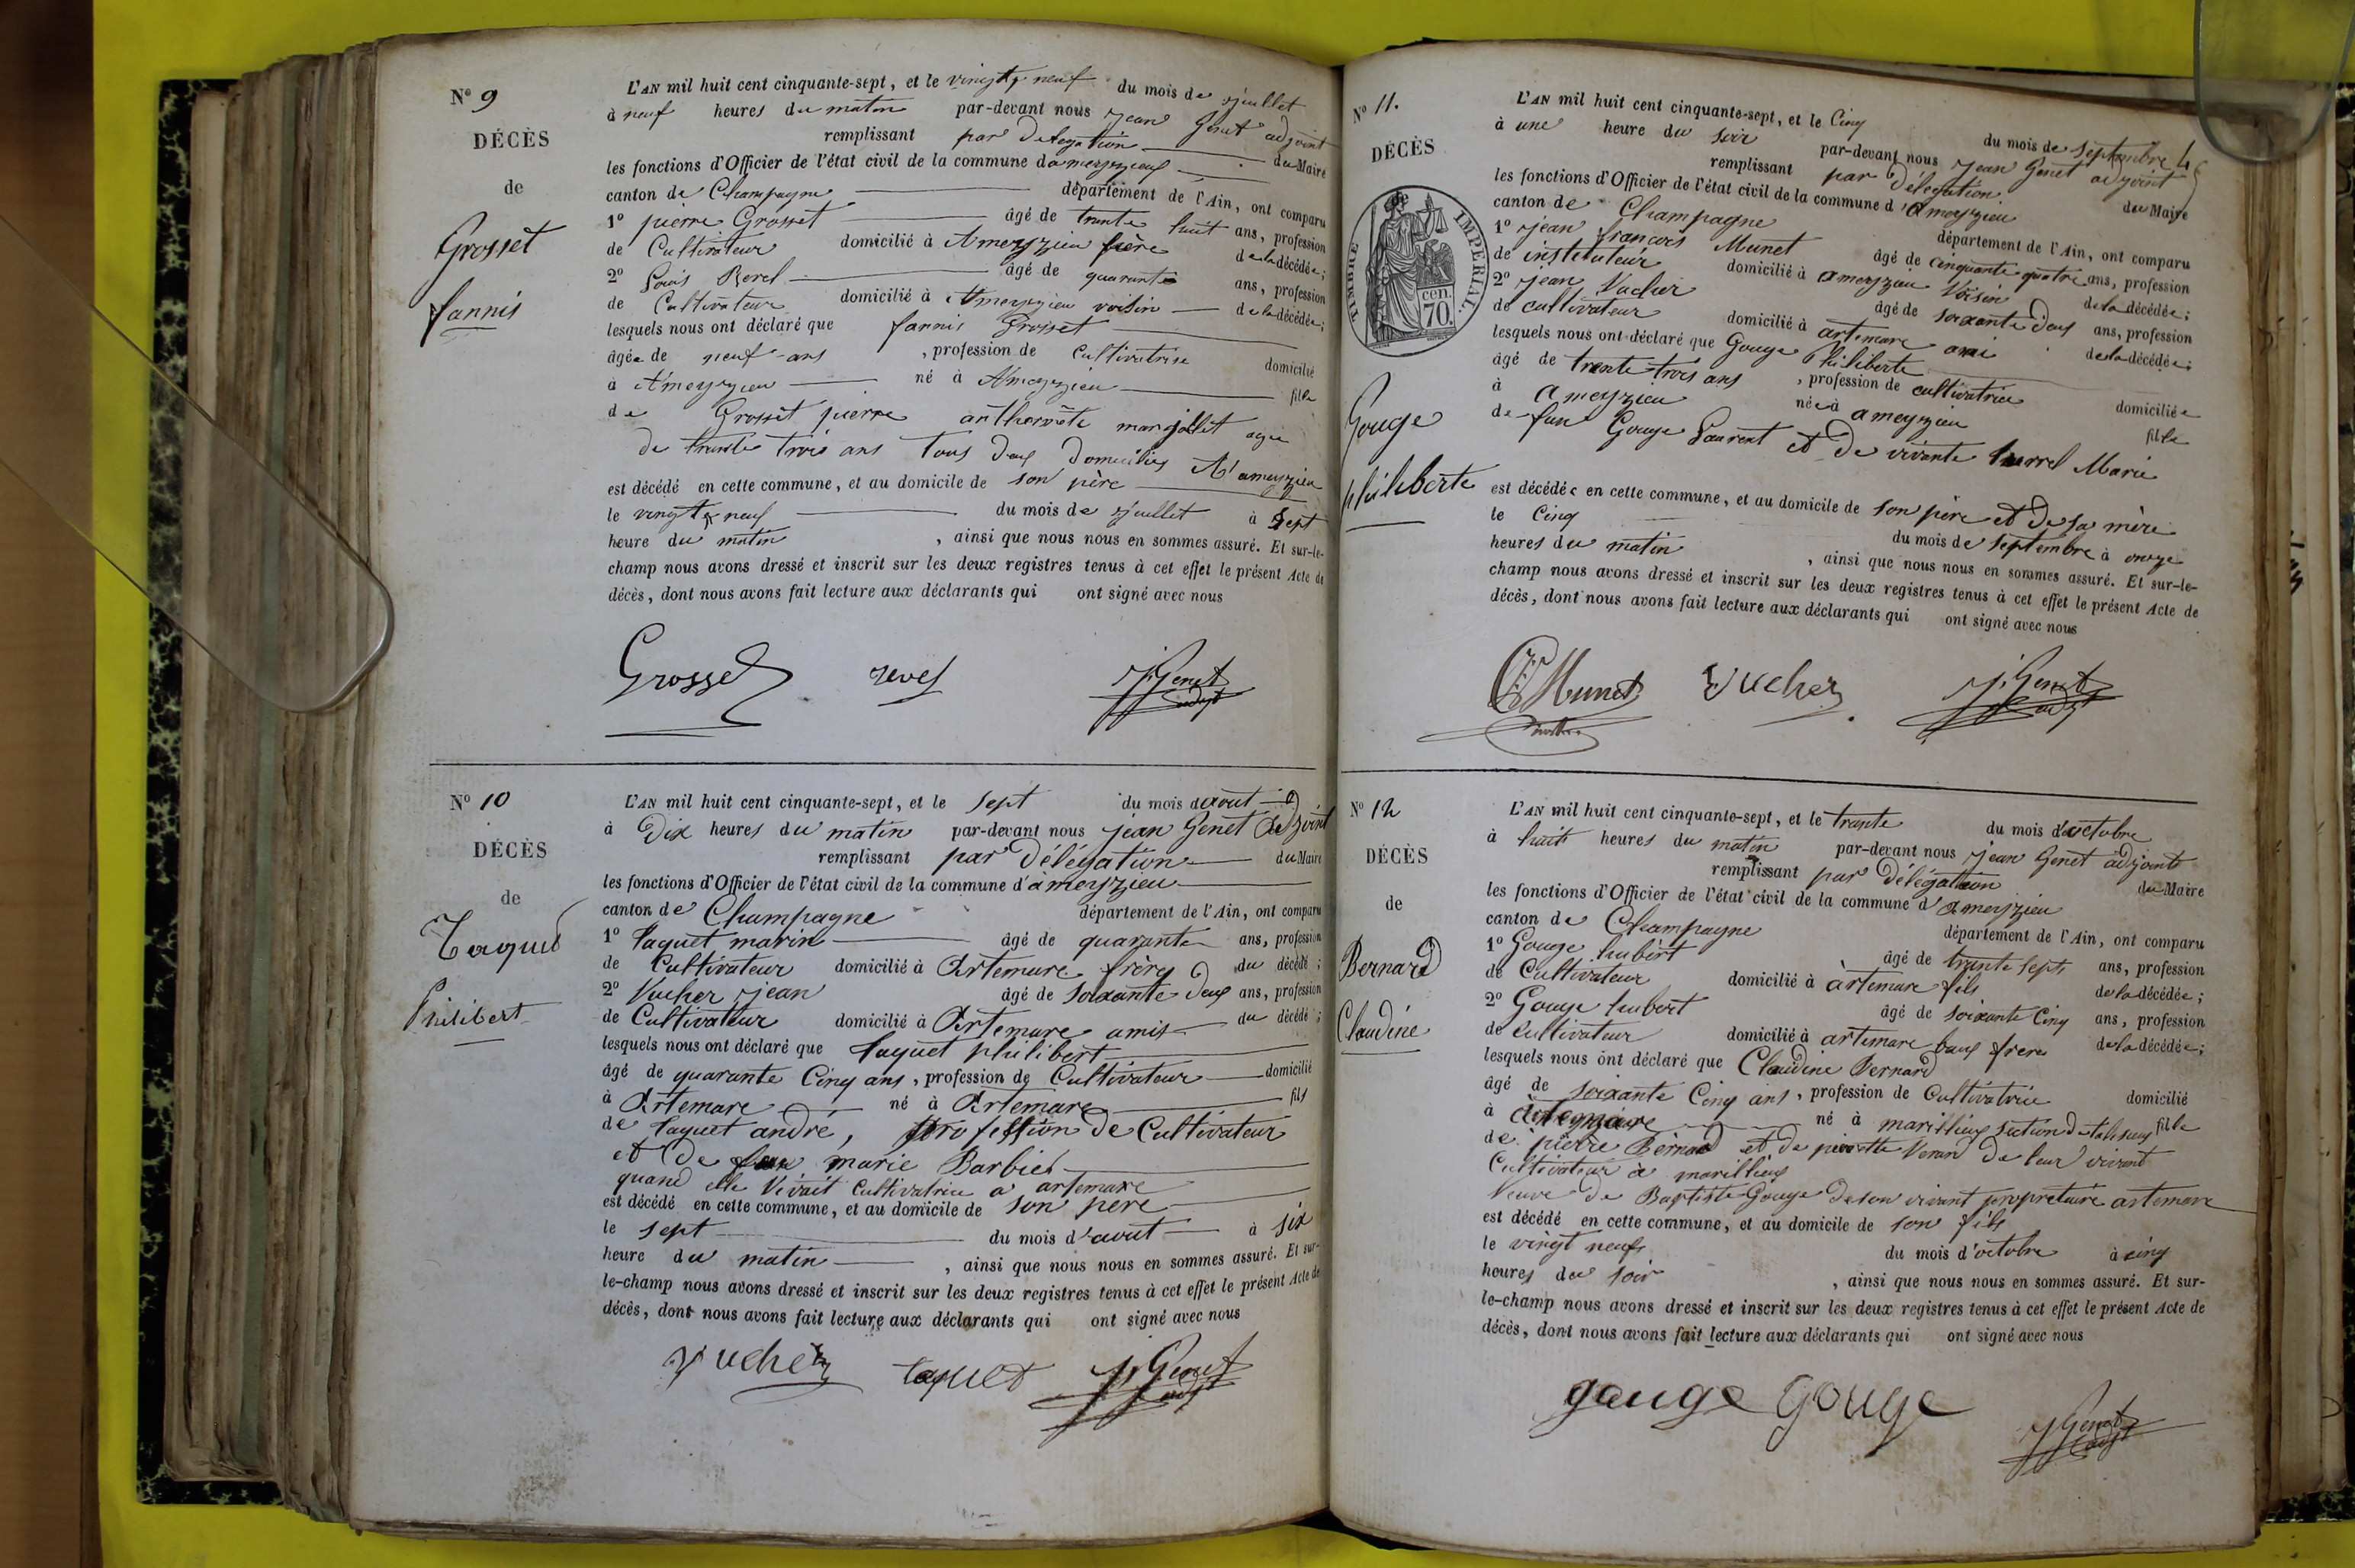 Nº 9
DÉCÈS
de
Grosset
fannis
L'AN mil huit cent cinquante-sept, et le vingt neuf du mois de juillet
à neuf heures du matin par-devant nous Jean Genet adjoint
remplissant par Délégation du Maire
les fonctions d'Officier de l'état civil de la commune d'ameyzieu
canton de Champagne département de l'Ain, ont comparu
1º pierre Grosset âgé de trente huit ans, profession
de Cultivateur domicilié à Ameyzieu frère de la décédée;
2º Louis âgé de quarante ans, profession
de Cultivateur domicilié à Ameyzieu voisin de la décédée;
lesquels nous ont déclaré que fannis Grosset
âgée de neuf ans, profession de Cultivatrice domicilié
à Ameyzieu né à Ameyzieu fille
de Grosset pierre anthermête marjollet agée
de trente trois ans tous deux Domiciliés A'ameyzieu
est décédé en cette commune, et au domicile de son père
le vingt neuf du mois de juillet à Sept
heure du matin, ainsi que nous nous en sommes assuré. Et sur-le-
champ nous avons dressé et inscrit sur les deux registres tenus à cet effet le présent Acte de
décès, dont nous avons fait lecture aux déclarants qui ont signé avec nous
Grosset J. Genet adjt
Nº 10
DÉCÈS
de
Taquet
Philibert
L'AN mil huit cent cinquante-sept, et le sept du mois d'aout
à Dix heures du matin par-devant nous jean Genet Adjoint
remplissant par Délégation du Maire
les fonctions d'Officier de l'état civil de la commune d'ameyzieu
canton de Champagne département de l'Ain, ont comparu
1º Taquet marin âgé de quarante ans, profession
de Cultivateur domicilié à Artemare frère du décédé;
2º Vucher jean âgé de soixante deux ans, profession
de Cultivateur domicilié à Artemare amis du décédé;
lesquels nous ont déclaré que Taquet philibert
âgé de quarante Cinq ans, profession de Cultivateur domicilié
à Artemare né à Artemare fils
de Taquet andré, profession de Cultivateur
et De feue marie Barbier
quand elle Vivait Cultivatrice a artemare
est décédé en cette commune, et au domicile de son père
le sept du mois d'aout à six
heure du matin, ainsi que nous nous en sommes assuré. Et sur-
le-champ nous avons dressé et inscrit sur les deux registres tenus à cet effet le présent Acte de
décès, dont nous avons fait lecture aux déclarants qui ont signé avec nous
Vucher taquet J. Genet adjt
Nº 11.
DÉCÈS
TIMBRE IMPÉRIAL.
70 cen.
Gouge
philiberte
L'AN mil huit cent cinquante-sept, et le Cinq du mois de septembre
à une heure du soir par-devant nous Jean Genet adjoint
remplissant par Délégation du Maire
les fonctions d'Officier de l'état civil de la commune d'ameyzieu
canton de Champagne département de l'Ain, ont comparu
1º jean francois Munet âgé de cinquante quatre ans, profession
de instituteur domicilié à ameyzieu Voisin de la décédée;
2º jean Vucher âgé de soixante deux ans, profession
de cultivateur domicilié à artemare ami de la décédée;
lesquels nous ont déclaré que Gouge Philiberte
âgé de trente-trois ans, profession de cultivatrice domiciliée
à ameyzieu née à ameyzieu fille
de feu Gouge Laurent et De vivante Marie
est décédée en cette commune, et au domicile de son père et De sa mère
le Cinq du mois de septembre à onze
heures du matin, ainsi que nous nous en sommes assuré. Et sur-le-
champ nous avons dressé et inscrit sur les deux registres tenus à cet effet le présent Acte de
décès, dont nous avons fait lecture aux déclarants qui ont signé avec nous
Munet Vucher J. Genet adjt
Nº 12
DÉCÈS
de
Bernard
Claudine
L'AN mil huit cent cinquante-sept, et le trante du mois d'octobre
à huit heures du matin par-devant nous jean Genet adjoint
remplissant par Délégation du Maire
les fonctions d'Officier de l'état civil de la commune d'ameyzieu
canton de Champagne département de l'Ain, ont comparu
1º Gouge hubert âgé de trante sept ans, profession
de Cultivateur domicilié à artemare fils de la décédée;
2º Gouge hubert âgé de soixante Cinq ans, profession
de Cultivateur domicilié à artemare baux frere de la décédée;
lesquels nous ont déclaré que Claudine Bernard
âgé de soixante Cinq ans, profession de Cultivatrice domicilié
à artemare né à marillieu section fille
de pierre Bernard et de pierrette De leur vivant
Cultivateur à marillieu
Veuve De Baptiste Gouge De son vivant propretaire artemare
est décédé en cette commune, et au domicile de son fils
le vingt neuf du mois d'octobre à cinq
heures du soir, ainsi que nous nous en sommes assuré. Et sur-
le-champ nous avons dressé et inscrit sur les deux registres tenus à cet effet le présent Acte de
décès, dont nous avons fait lecture aux déclarants qui ont signé avec nous
gouge Gouge J Genet adjt